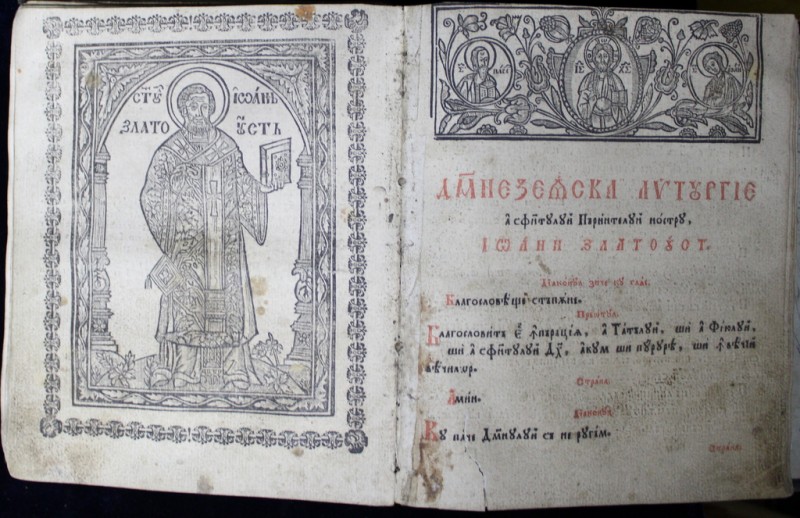 СТ҃Ы ІѠАННЬ
ЗЛАТО ОУСТЬ
ІС ХС
ДꙊМНЕЗЕѢСКА ЛѴТꙊРГІЕ
А сфⷩ҇тулуй Пѫринтелуй ностру,
ІѠАНН ЗЛАТОУСТ.
Діаконул зиче ку глас.
Благословѣще стъпѫне.
Преѡтул.
Благословитъ є҆ ꙟпъръція, а Татълуй, ши а Фїюлуй,
ши а сфⷩ҇тулуй Дх҃, акум ши пурурѣ, ши ꙟ вѣчїй
вѣчилѡр.
Страна.
Амин.
Діаконул
Ку паче Дм҃нулуй съ не ругъм.
Страна.